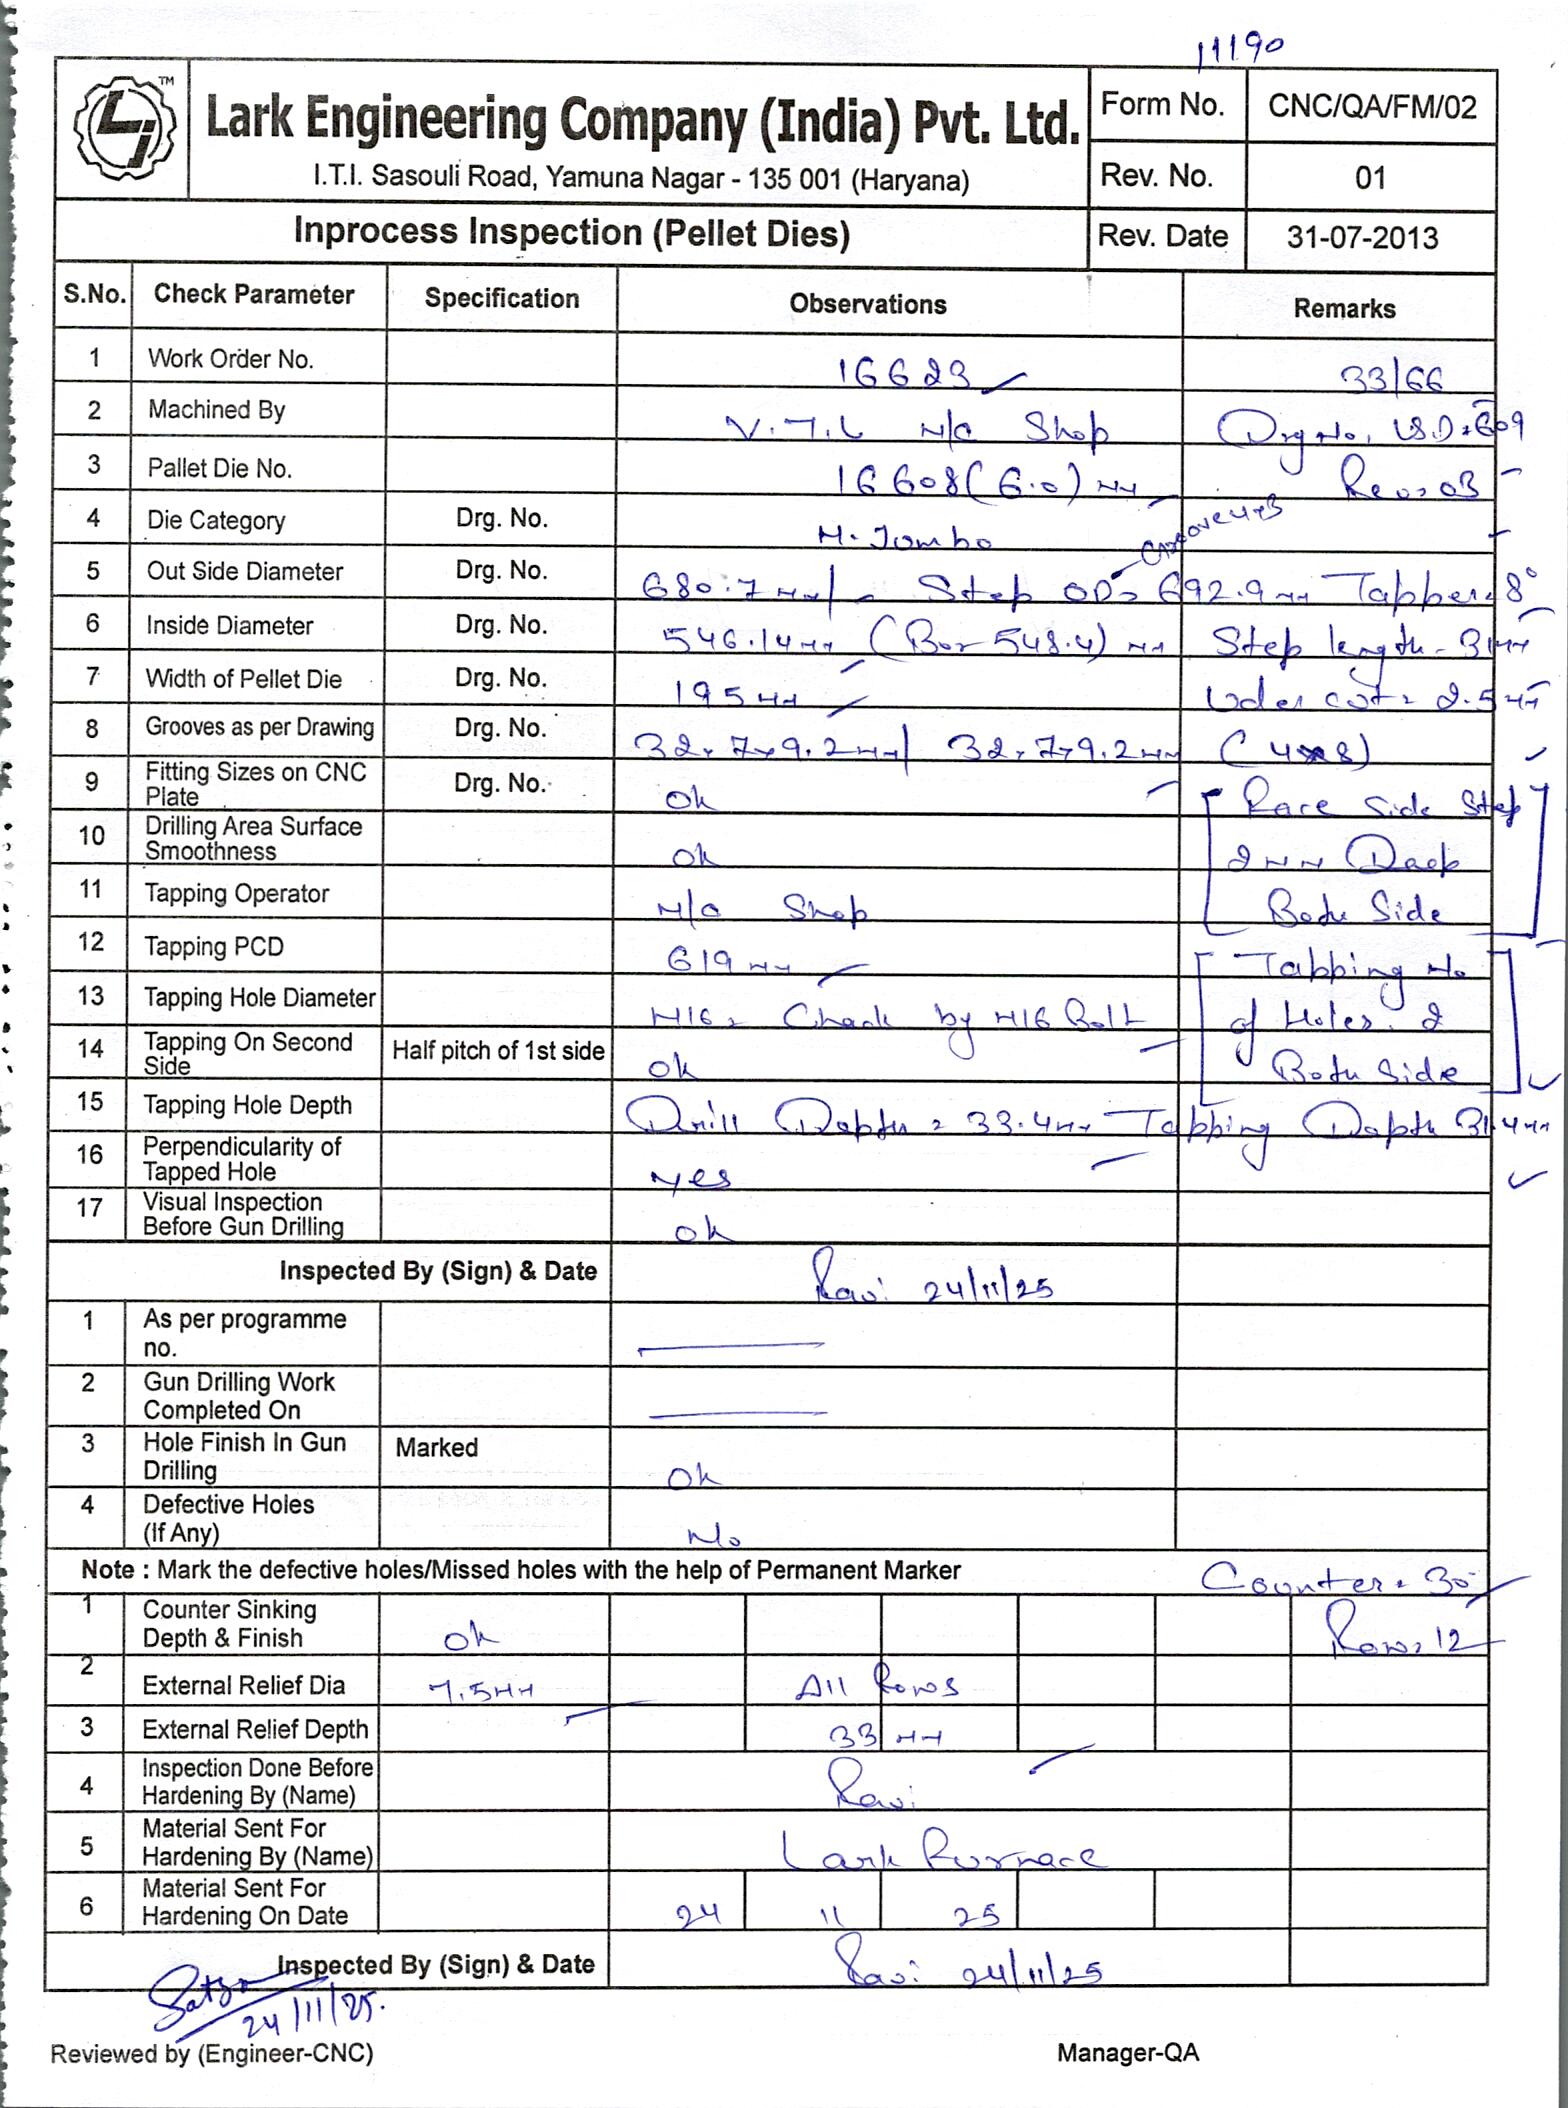 11190
Li TM
Lark Engineering Company (India) Pvt. Ltd.
I.T.I. Sasouli Road, Yamuna Nagar - 135 001 (Haryana)
Form No. CNC/QA/FM/02
Rev. No. 01
Inprocess Inspection (Pellet Dies) Rev. Date 31-07-2013
S.No. Check Parameter Specification Observations Remarks
1 Work Order No. 16623 33/66
2 Machined By V.T.L M/C Shop Drg No. LSD-609
3 Pallet Die No. 16608(6.0) mm Rev-03
4 Die Category Drg. No. M. Jombo
5 Out Side Diameter Drg. No. 680.7mm/- Step OD= 692.9mm Tapper-8°
6 Inside Diameter Drg. No. 546.14mm (Bor 548.4) mm Step length-31mm
7 Width of Pellet Die Drg. No. 195mm Uder cut= 2.5mm
8 Grooves as per Drawing Drg. No. 32x7x9.2mm/ 32x7x9.2mm (4x8)
9 Fitting Sizes on CNC Plate Drg. No. Ok Race Side Step
10 Drilling Area Surface Smoothness Ok 2mm Deep
11 Tapping Operator M/C Shop Both Side
12 Tapping PCD 619mm Tapping No
13 Tapping Hole Diameter M16= Check by M16 Bolt of Holes. 2
14 Tapping On Second Side Half pitch of 1st side Ok Both Side
15 Tapping Hole Depth Drill Depth = 33.4mm Tapping Depth 31.4mm
16 Perpendicularity of Tapped Hole yes
17 Visual Inspection Before Gun Drilling Ok
Inspected By (Sign) & Date Ravi 24/11/25
1 As per programme no.
2 Gun Drilling Work Completed On
3 Hole Finish In Gun Drilling Marked Ok
4 Defective Holes (If Any) No
Note : Mark the defective holes/Missed holes with the help of Permanent Marker Counter = 30°
1 Counter Sinking Depth & Finish Ok Row= 12
2 External Relief Dia 7.5mm All Rows
3 External Relief Depth 33mm
4 Inspection Done Before Hardening By (Name) Ravi
5 Material Sent For Hardening By (Name) Lark Furnace
6 Material Sent For Hardening On Date 24 11 25
Inspected By (Sign) & Date Ravi 24/11/25
24/11/25.
Reviewed by (Engineer-CNC) Manager-QA